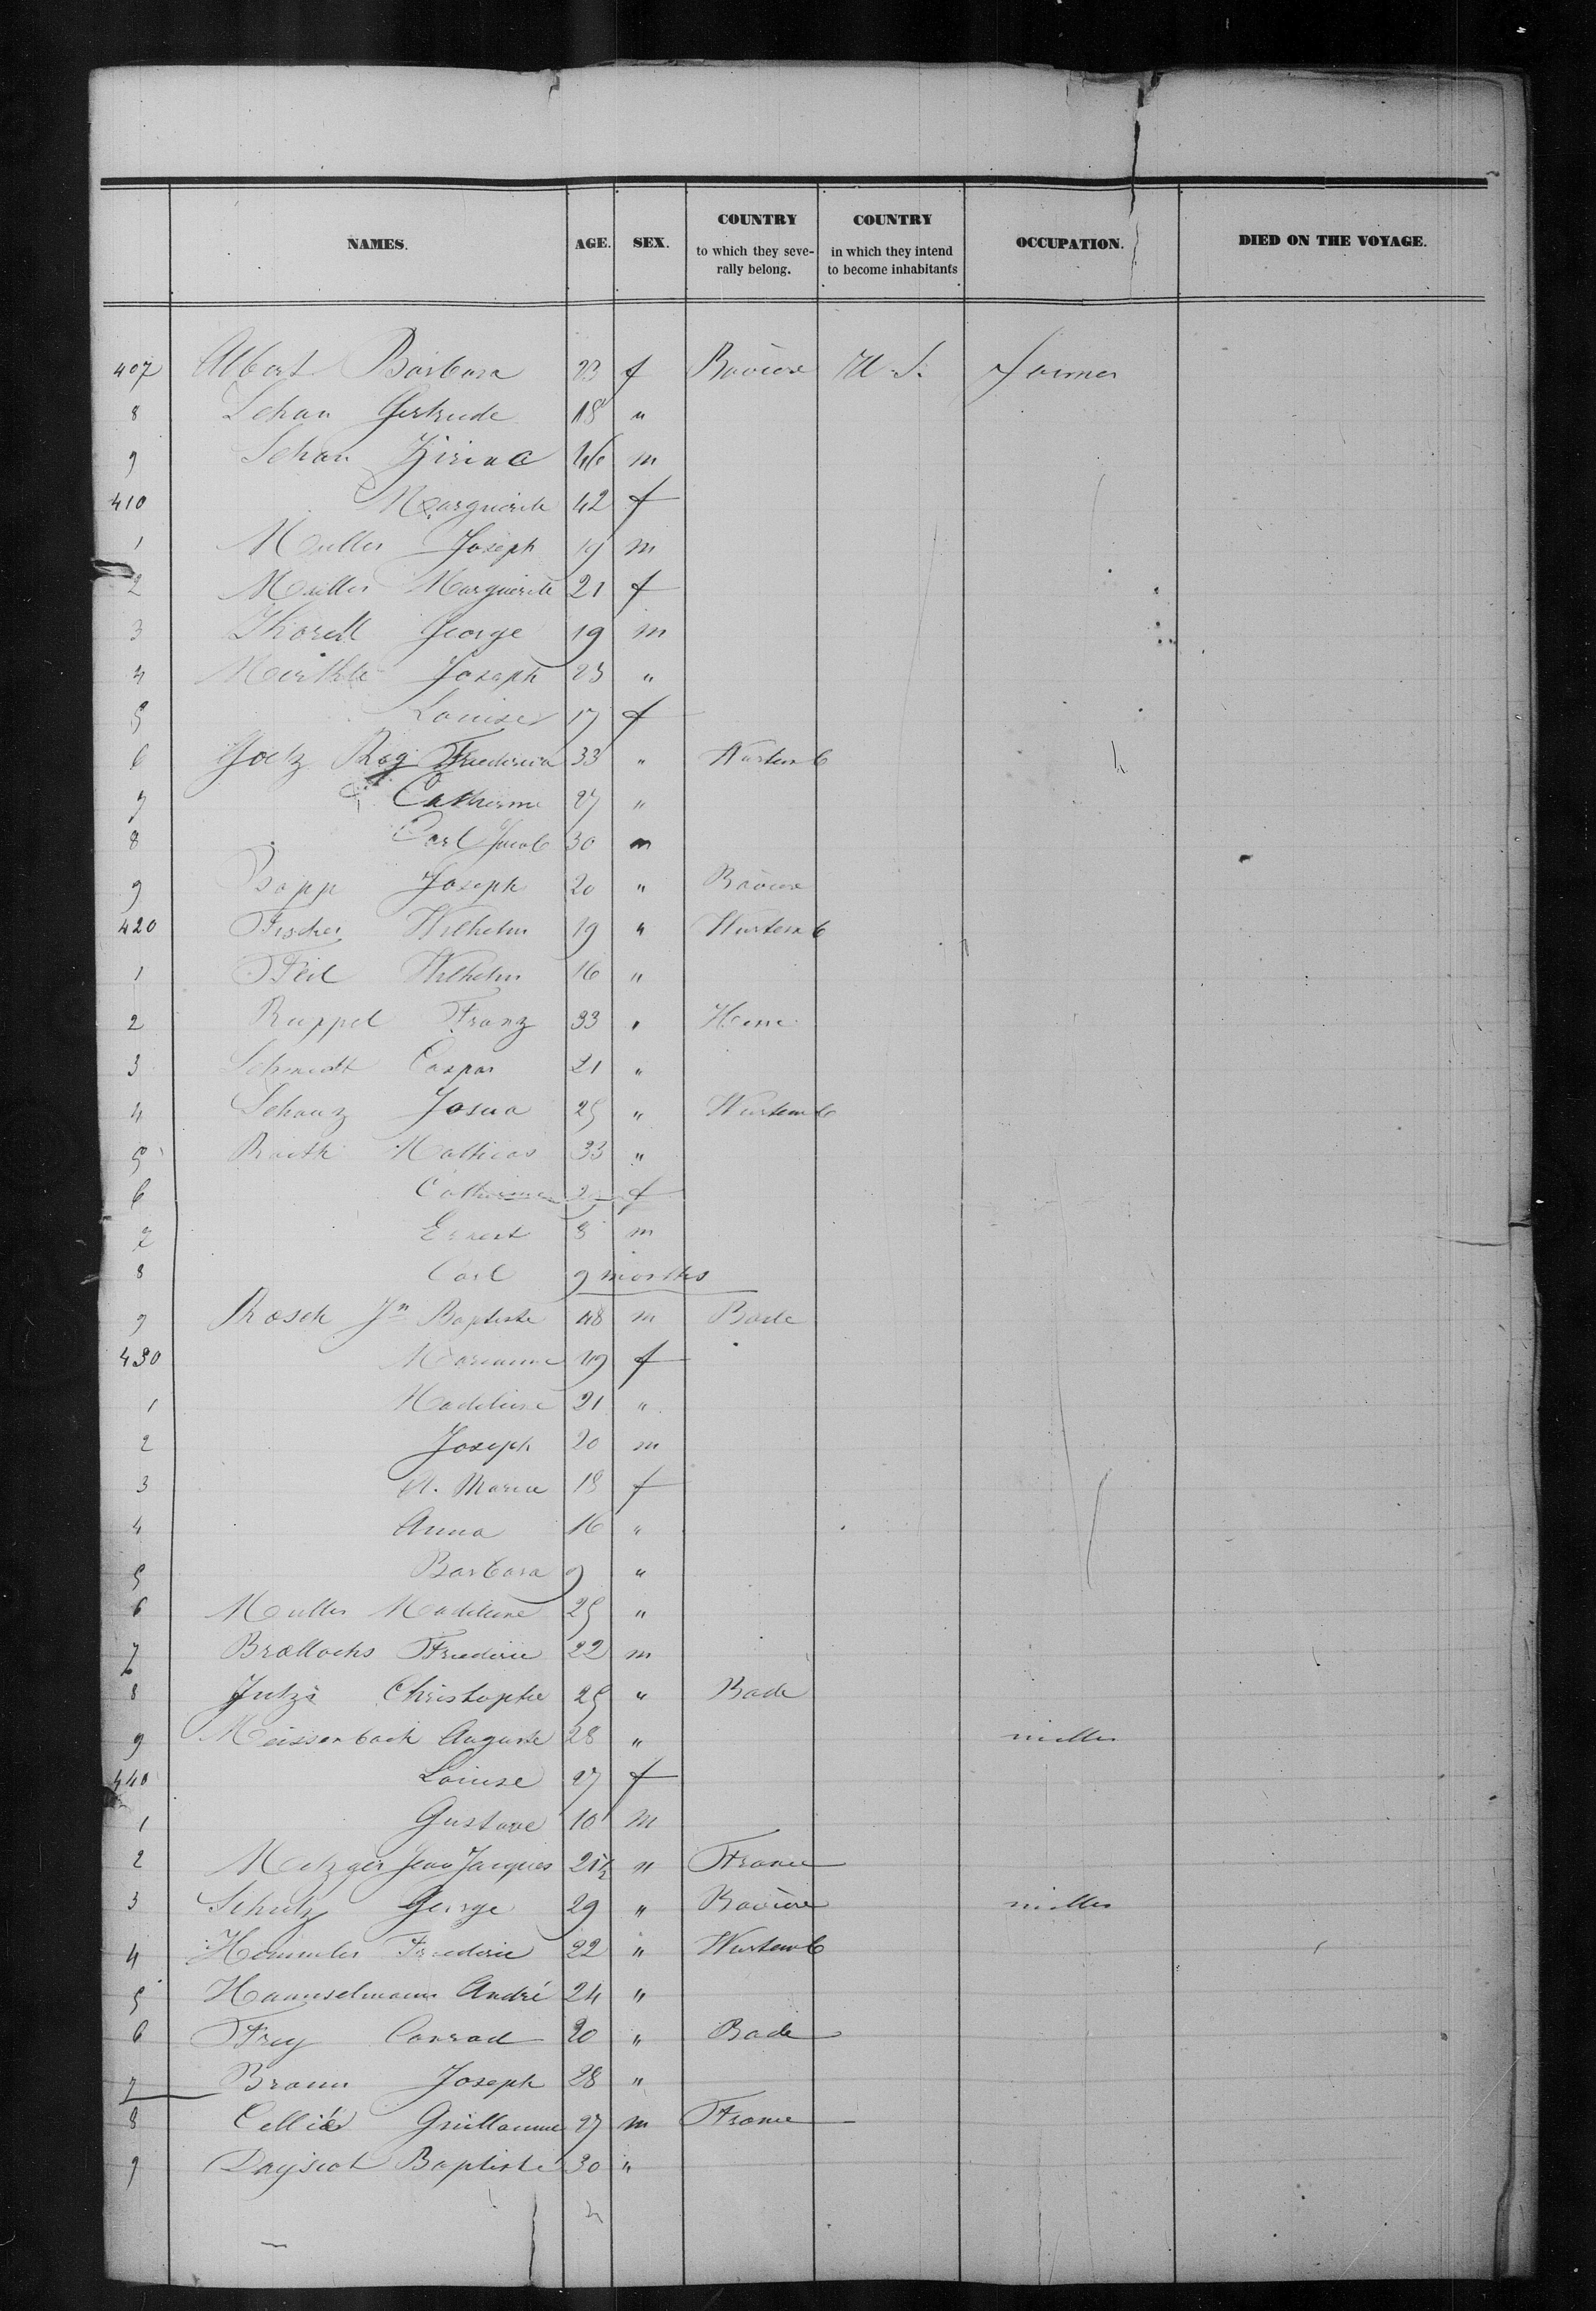 NAMES. AGE. SEX. COUNTRY to which they seve-rally belong. COUNTRY in which they intend to become inhabitants OCCUPATION. DIED ON THE VOYAGE.
407 Albert Barbara 23 f Baviere U.S. farmer
8 Schan Gertrude 18 "
9 Schan 46 m
410 Marguerite 42 f
1 Muller Joseph 19 m
2 Muller Marguerite 21 f
3 George 19 m
4 Joseph 23 "
5 Louise 17 f
6 Goetz Frederica 33 " Wurtemb
7 Catherine 27 "
8 Carl Jacob 30 m
9 Bopp Joseph 20 " Baviere
420 Fischer Wilhelm 19 " Wurtemb
1 Wilhelm 16 "
2 Ruppel Franz 33 " Hesse
3 Schmidt Caspar 21 "
4 Schanz Josua 25 " Wurtemb
5 Raith Mathias 33 "
6 Catherine f
7 Ernest 3 m
8 Carl 9 months
9 Rosch Jn Baptiste 48 m Bade
430 Marianne 49 f
1 Madeleine 21 "
2 Joseph 20 m
3 A. Maria 18 f
4 Anna 16 "
5 Barbara 9 "
6 Muller Madeleine 25 "
7 Frederic 22 m
8 Jutzi Christophe 25 " Bade
9 Meissenbach Auguste 28 " miller
440 Louise 27 f
1 Gustave 10 m
2 Metzger Jean Jacques 21½ " France
3 Schutz George 29 " Baviere miller
4 Frederic 22 " Wurtemb
5 Haunselmann André 24 "
6 Frey Conrad 20 " Bade
7 Braun Joseph 28 "
8 Guillaume 27 m France
9 Baptiste 30 "